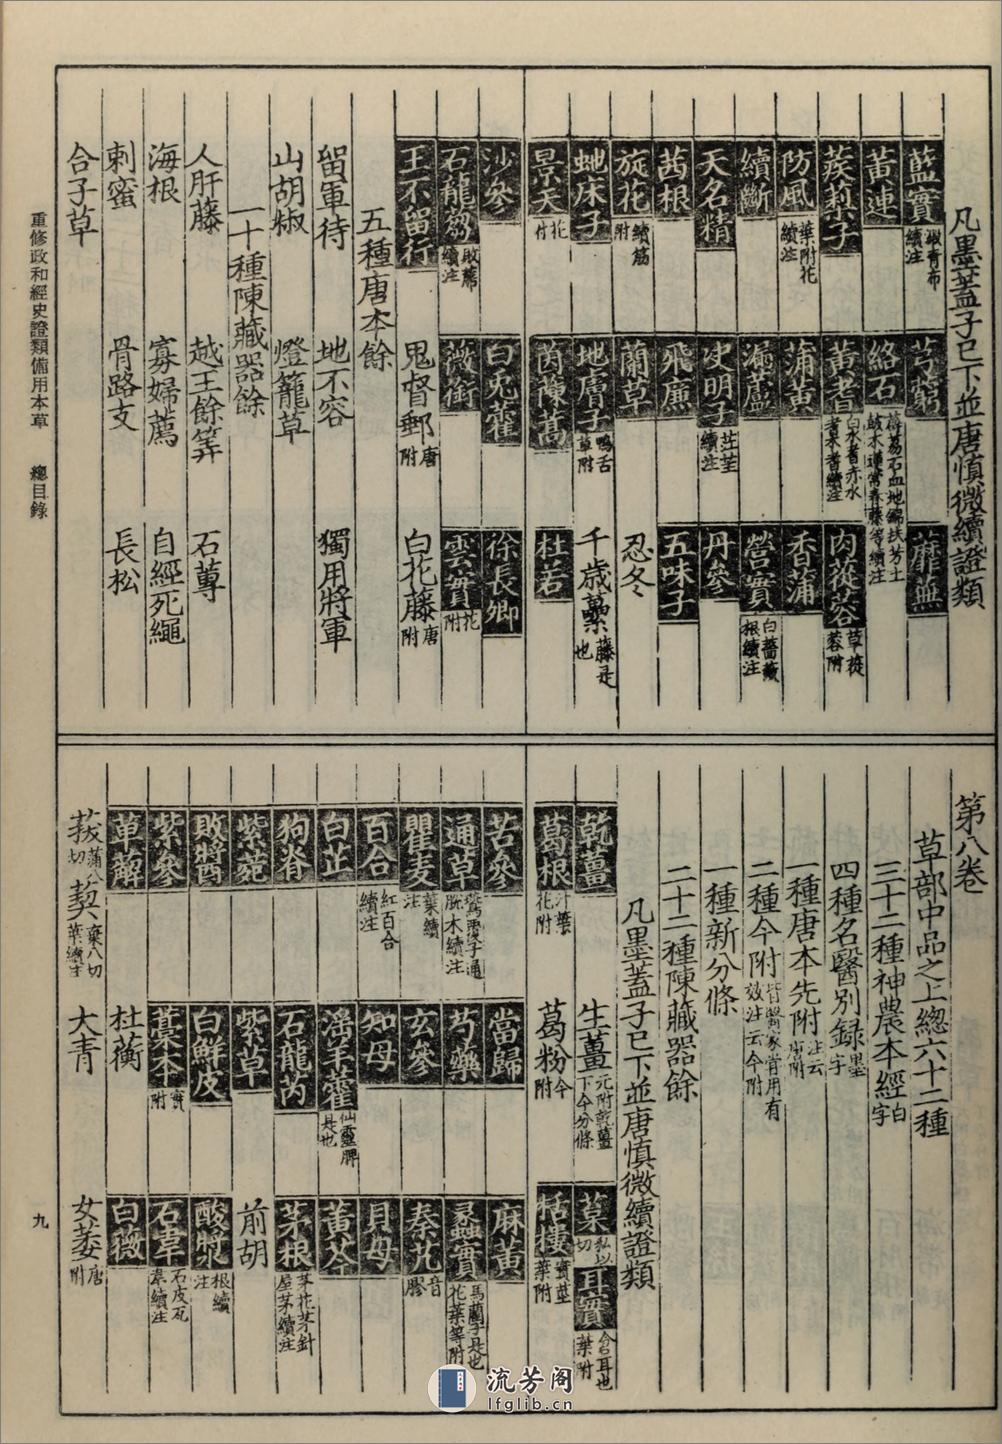 凡墨蓋子已下並唐慎微續證類
藍實 澱青布續注 芎藭 蘼蕪
黃連 絡石 薜荔石血地錦扶芳土鼓木蓮常春藤等續注
蒺蔾子 黃耆 白水耆赤水耆木耆續注 肉蓯蓉 草蓯蓉附
防風 葉附花續注 蒲黃 香蒲
續斷 漏蘆 營實 白薔薇根續注
天名精 決明子 茳芏續注 丹參
茜根 飛廉 五味子
旋花 續筋附 蘭草 忍冬
虵床子 地膚子 鴨舌草附 千歲蘽 藤是也
景天 花附 茵蔯蒿 杜若
沙參 白兎藿 徐長卿
石龍芻 敗席續注 薇銜 雲實 花附
王不留行 鬼督郵 唐附 白花藤 唐附
五種唐本餘
留軍待 地不容 獨用將軍
山胡椒 燈籠草
一十種陳藏器餘
人肝藤 越王餘筭 石蓴
海根 寡婦薦 自經死繩
刺蜜 骨路支 長松
合子草
第八卷
草部中品之上總六十二種
三十二種神農本經 白字
四種名醫別録 墨字
一種唐本先附 注云唐附
二種今附 皆醫家嘗用有效注云今附
一種新分條
二十二種陳藏器餘
凡墨蓋子已下並唐慎微續證類
乾薑 生薑 元附乾薑下今分條 葈 私以切 耳實 蒼耳也葉附
葛根 汁葉花附 葛粉 今附 栝樓 實莖葉附
苦參 當歸 麻黃
通草 鷰覆子通脫木續注 芍藥 蠡實 馬藺子是也花葉等附
瞿麦 葉續注 玄參 秦艽 音膠
百合 紅百合續注 知母 貝母
白芷 滛羊藿 仙靈脾是也 黃芩
狗脊 石龍芮 茅根 茅花茅針屋茅續注
紫菀 紫草 前胡
敗醬 白鮮皮 酸漿 根續注
紫參 藁本 實附 石韋 石皮瓦韋續注
萆薢 杜蘅 白薇
菝 蒲八切 葜 棄八切葉續注 大青 女萎 唐附
重修政和經史證類備用本草 總目錄
一九
流芳阁
lfglib.cn